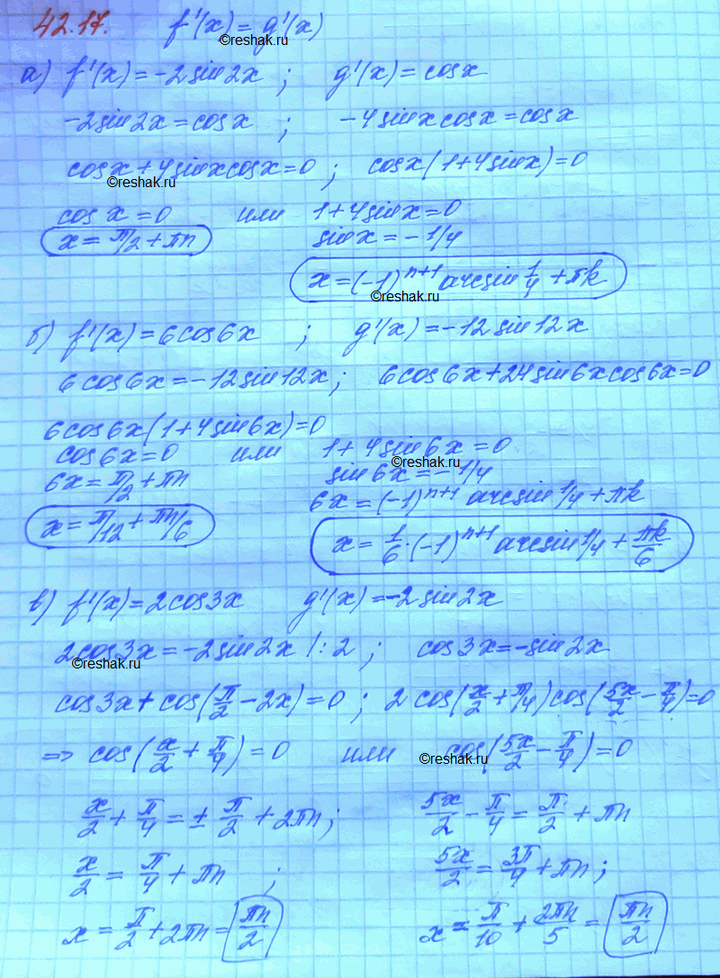 42.17. f'(x) = g'(x)
©reshak.ru
а) f'(x) = -2 sin 2x ; g'(x) = cos x
-2 sin 2x = cos x ; -4 sin x cos x = cos x
cos x + 4 sin x cos x = 0 ; cos x (1 + 4 sin x) = 0
©reshak.ru
cos x = 0 или 1 + 4 sin x = 0
x = π/2 + πn sin x = -1/4
x = (-1)^{n+1} arcsin 1/4 + πk
©reshak.ru
б) f'(x) = 6 cos 6x ; g'(x) = -12 sin 12x
6 cos 6x = -12 sin 12x ; 6 cos 6x + 24 sin 6x cos 6x = 0
6 cos 6x (1 + 4 sin 6x) = 0
cos 6x = 0 или 1 + 4 sin 6x = 0
©reshak.ru
6x = π/2 + πn sin 6x = -1/4
6x = (-1)^{n+1} arcsin 1/4 + πk
x = π/12 + πn/6 x = 1/6 · (-1)^{n+1} arcsin 1/4 + πk/6
в) f'(x) = 2 cos 3x g'(x) = -2 sin 2x
2 cos 3x = -2 sin 2x |: 2 ; cos 3x = -sin 2x
©reshak.ru
cos 3x + cos (π/2 - 2x) = 0 ; 2 cos (x/2 + π/4) cos (5x/2 - π/4) = 0
=> cos (x/2 + π/4) = 0 или cos (5x/2 - π/4) = 0
©reshak.ru
x/2 + π/4 = ± π/2 + 2πn ; 5x/2 - π/4 = π/2 + πn
x/2 = π/4 + πn ; 5x/2 = 3π/4 + πn ;
x = π/2 + 2πn = πn/2 x = π/10 + 2πn/5 = πn/2